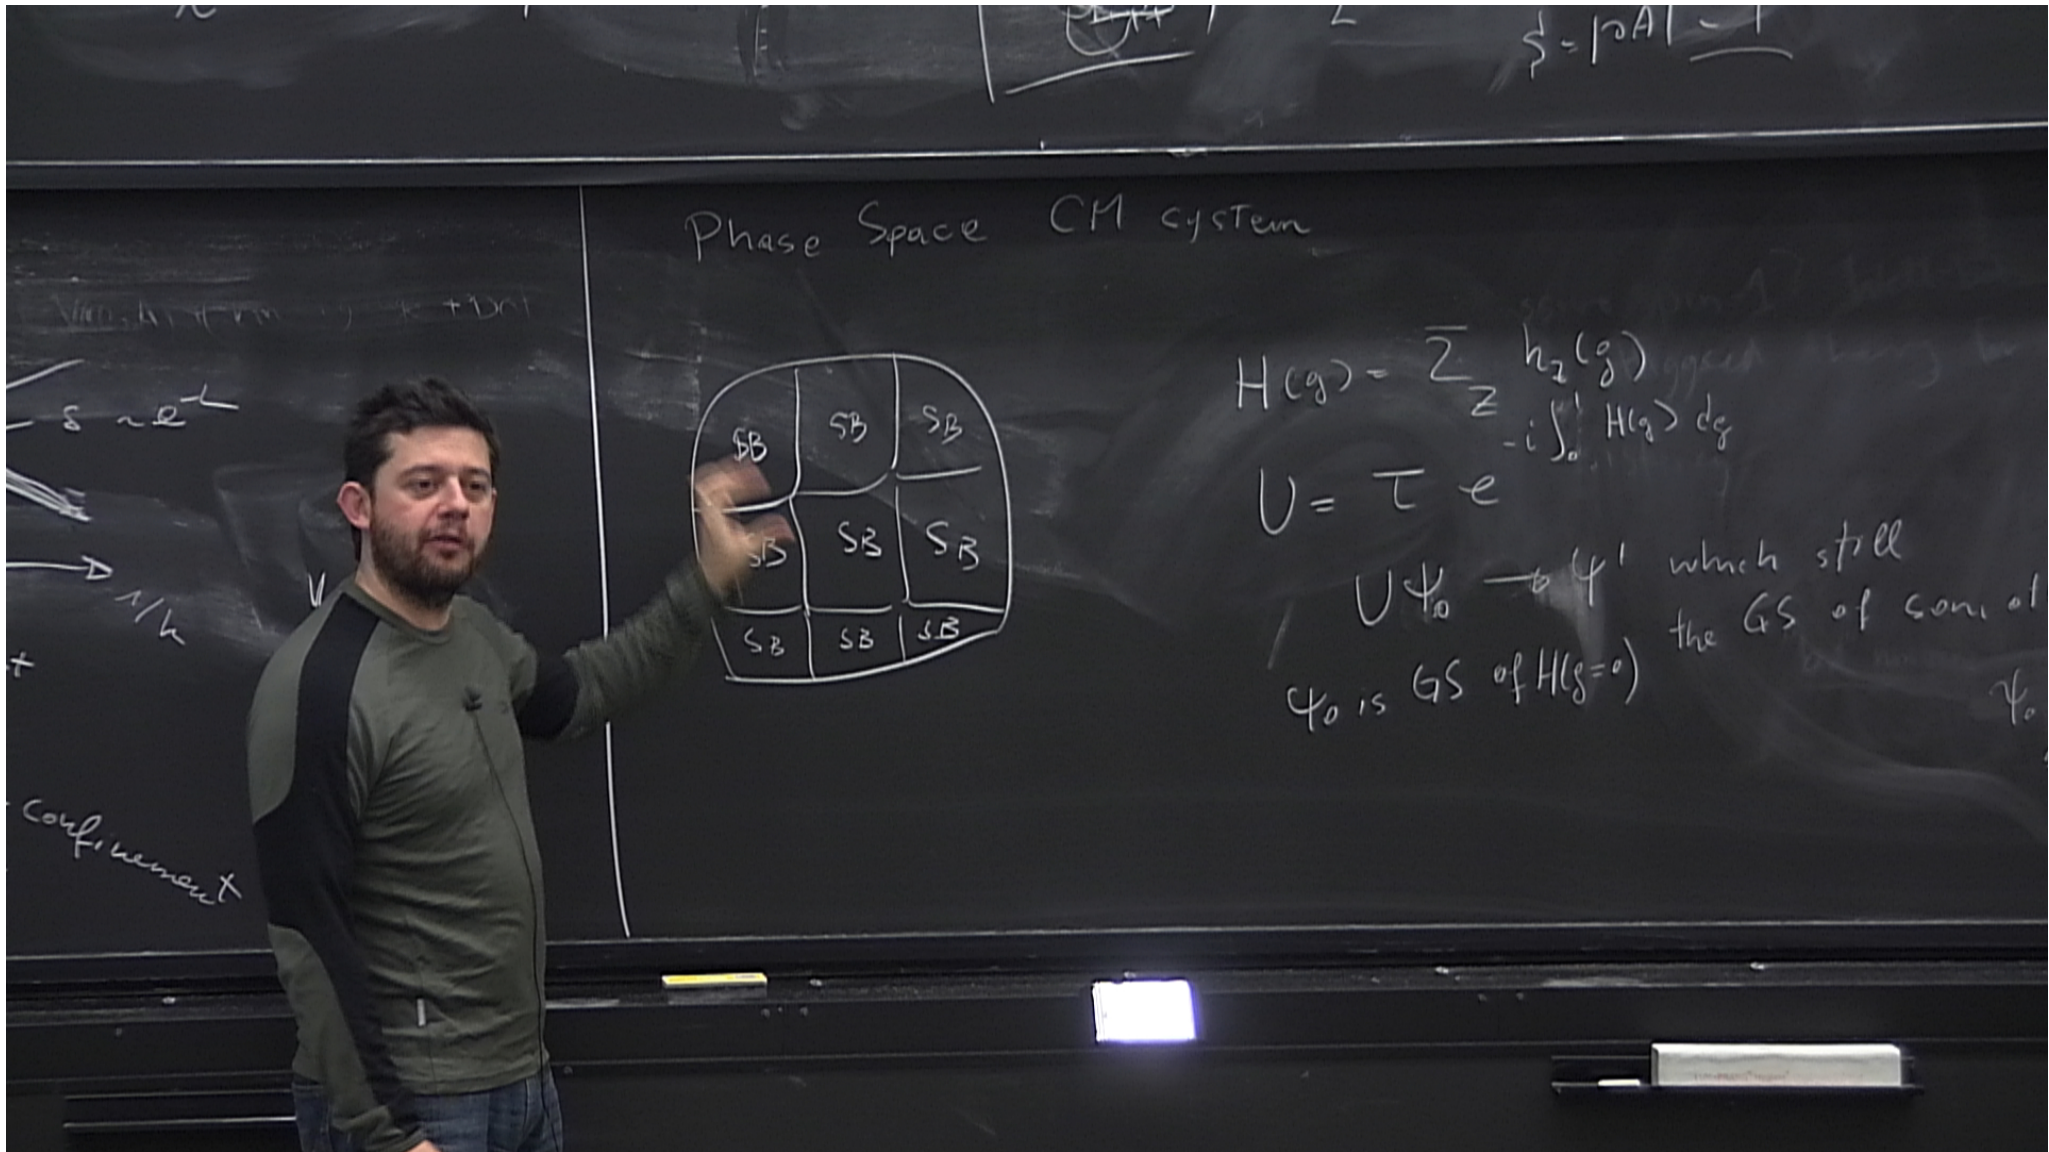 S = |∂A| - 1
Phase Space CM system
δ ~ e^-L
1/k
confinement
SB SB SB
SB SB SB
SB SB SB
H(g) = Σ_Z h_Z(g)
U = T e^{-i∫_0^1 H(g) dg}
UΨ_0 → Ψ' which still
the GS of some
Ψ_0 is GS of H(g=0)
Ψ_0